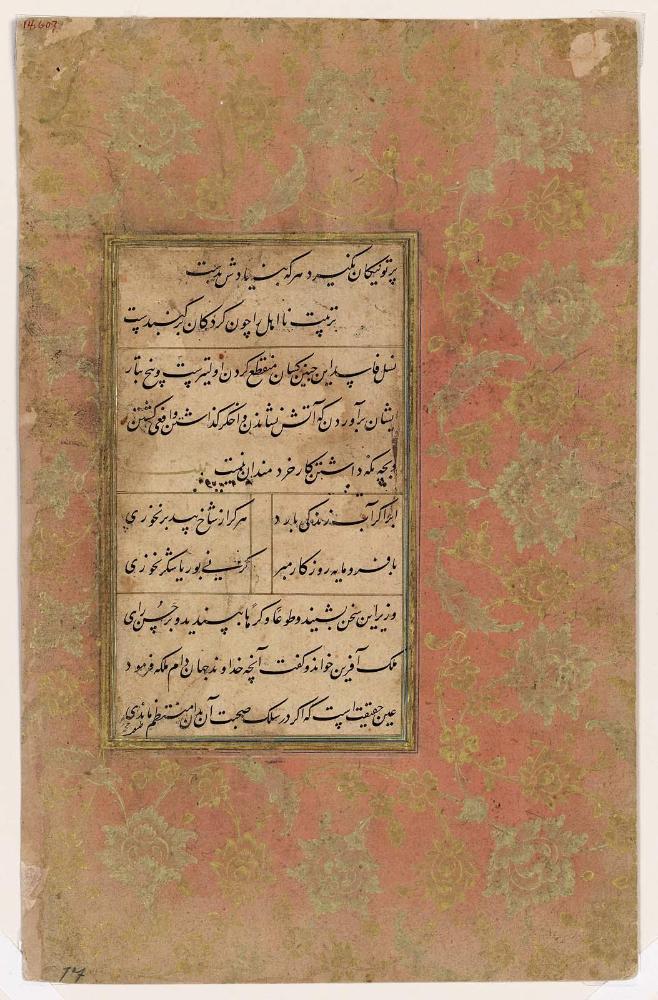 14.609
پرتو نیکان نگیرد هرکه بنیادش بدست
تربیت نااهل را چون گردکان بر گنبدست
نسل فاسد این چنین کسان منقطع کردن اولیترست و بیخ تبار
ایشان برآوردن که آتش نشاندن و اخگر گذاشتن و افعی کشتن
و بچه نگه داشتن کار خردمندان نیست
ابر اگر آب زندگی بارد هرگز از شاخ بید بر نخوری
با فرومایه روزگار مبر کز نی بوریا شکر نخوری
وزیر این سخن بشنید و طوعا و کرها بپسندید و بر حسن رای
ملک آفرین خواند و گفت آنچه خداوند جهان دام ملکه فرمود
عین حقیقت است که اگر در سلک صحبت آن بدان منتظم ماندی